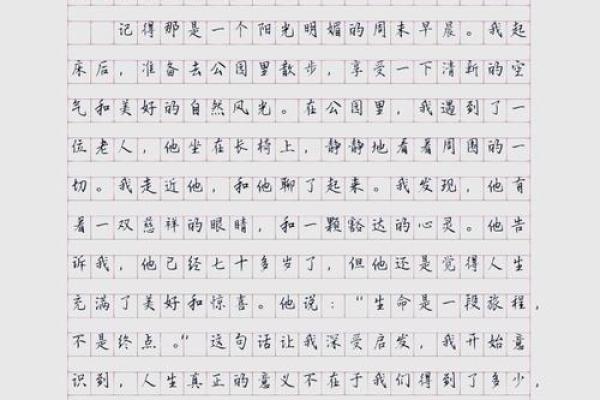 记得那是一个阳光明媚的周末早晨。我起
床后，准备去公园里散步，享受一下清新的空
气和美好的自然风光。在公园里，我遇到了一
位老人，他坐在长椅上，静静地看着周围的一
切。我走近他，和他聊了起来。我发现，他有
着一双慈祥的眼睛，和一颗豁达的心灵。他告
诉我，他已经七十多岁了，但他还是觉得人生
充满了美好和惊喜。他说：“生命是一段旅程，
不是终点。”这句话让我深受启发，我开始意
识到，人生真正的意义不在于我们得到了多少，